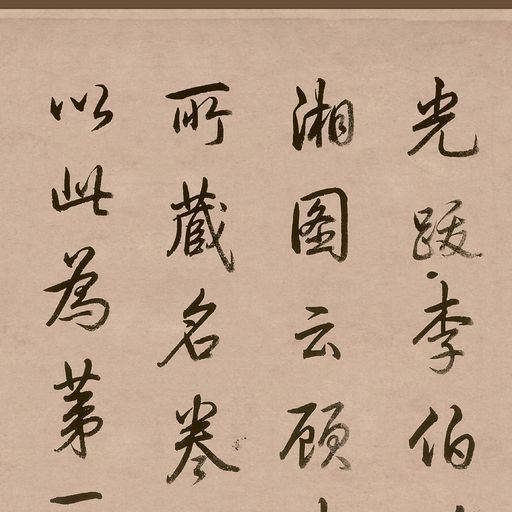 光跋李伯
湘图云顾
所藏名卷
以此為第一